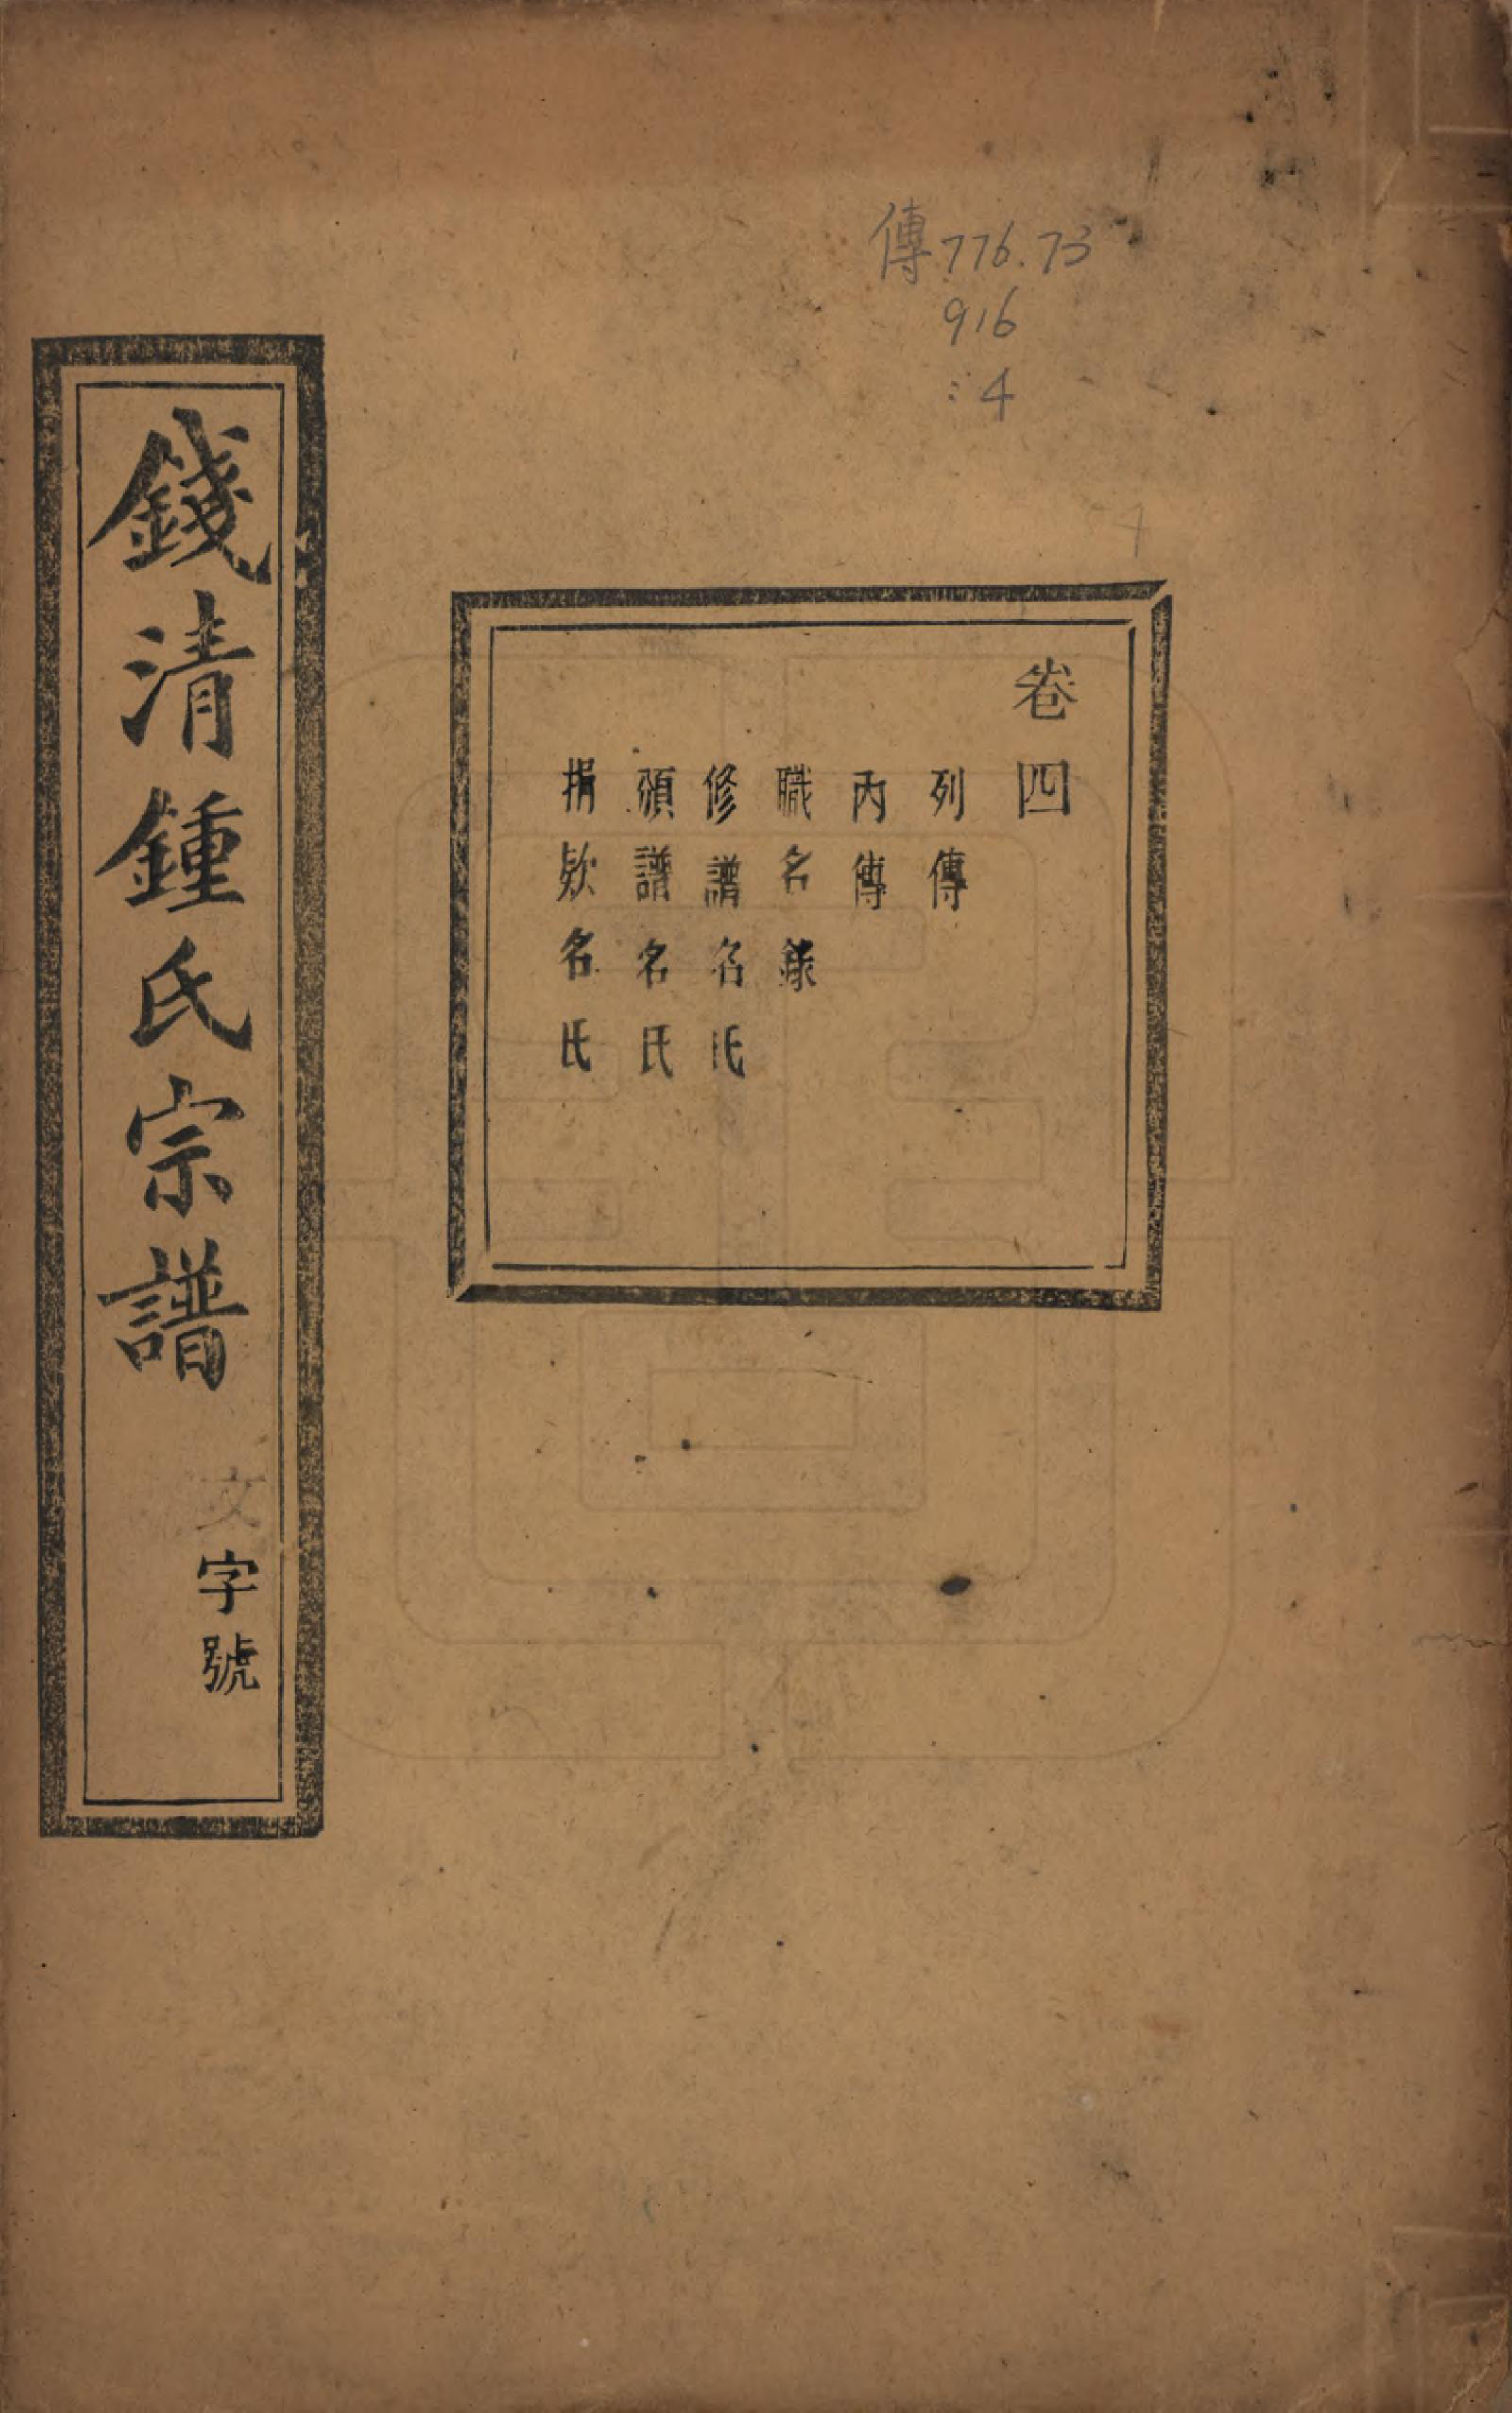 傳776.73
916
:4
4
卷四
列傳
內傳
職名錄
修譜名氏
領譜名氏
捐欵名氏
錢清鍾氏宗譜
文字號